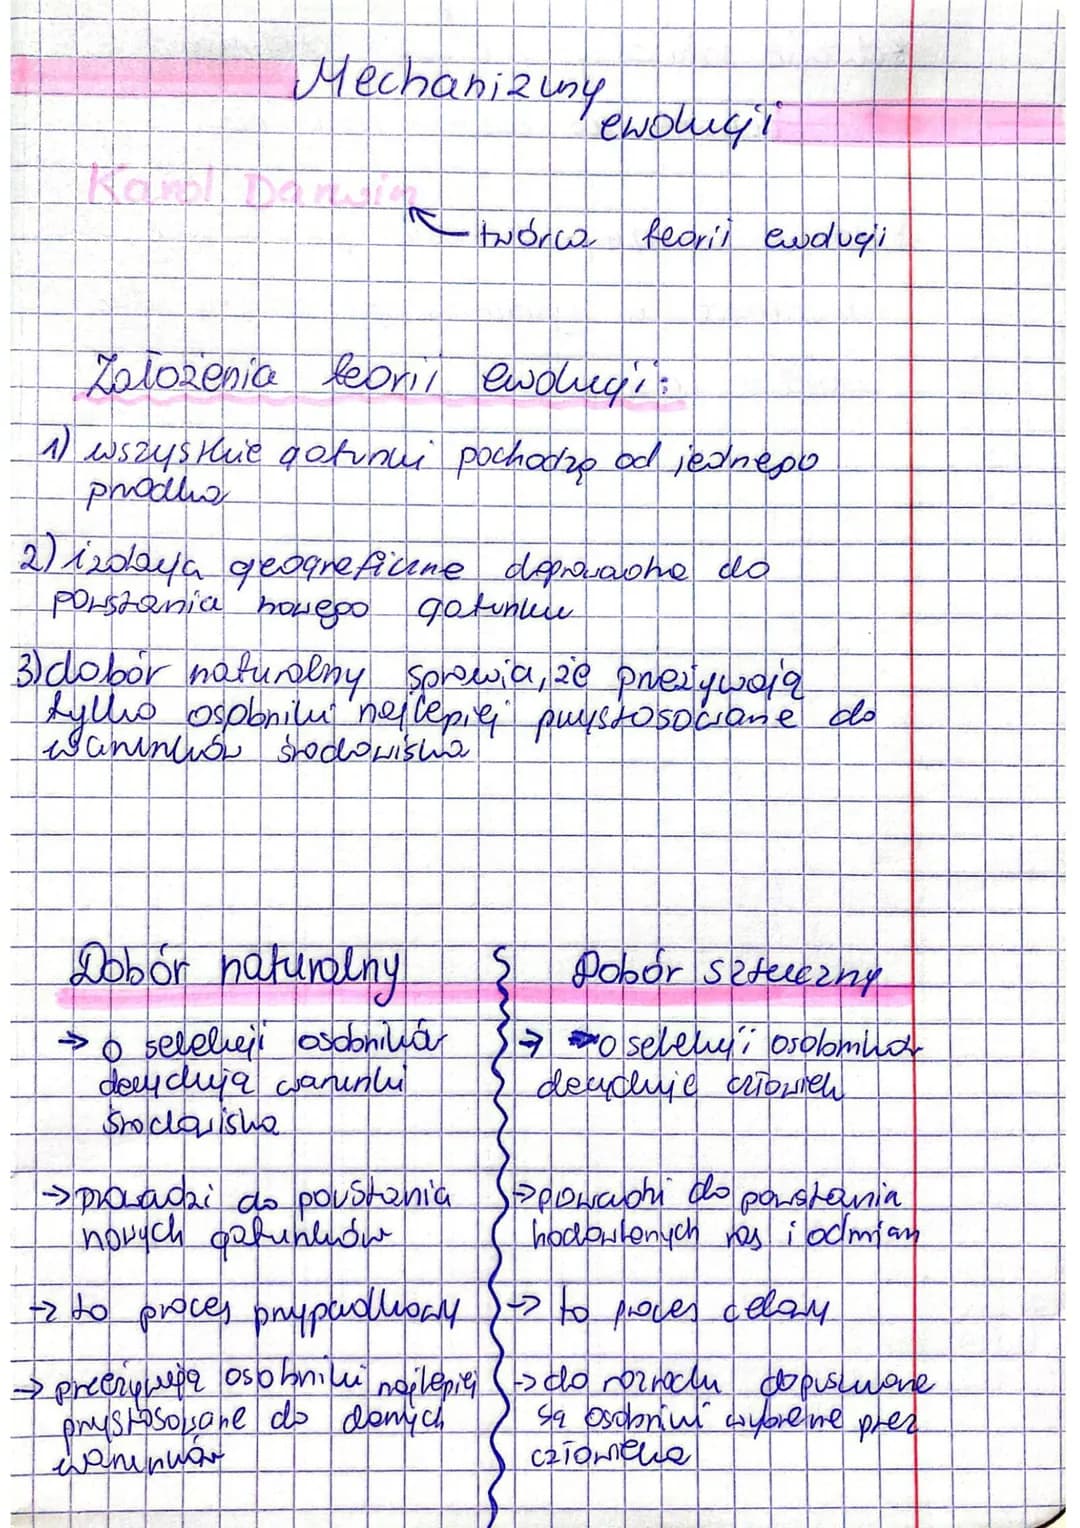 Mechanizmy
ewolucji
Karol Darwin
twórca teorii ewolucji
Założenia teorii ewolucji:
1) wszystkie gatunki pochodzą od jednego
przodka
2) izolacja geograficzne doprowadha do
powstania nowego gatunku
3) dobór naturalny sprawia, że przeżywają
tylko osobniki najlepiej przystosowane do
warunków środowiska
Dobór naturalny
Dobór sztuczny
→ o selekcji osobników
decydują warunki
środowiska
→ prowadzi do powstania
nowych gatunków
→ to proces przypadkowy
→ przeżywają osobniki najlepiej
przystosowane do danych
warunków
→ o selekcji osobników
decyduje człowiek
→ powadzi do powstania
hodowlanych ras i odmian
→ to proces celowy
→ do rozrodu dopuszczane
są osobniki wybrane przez
człowieka